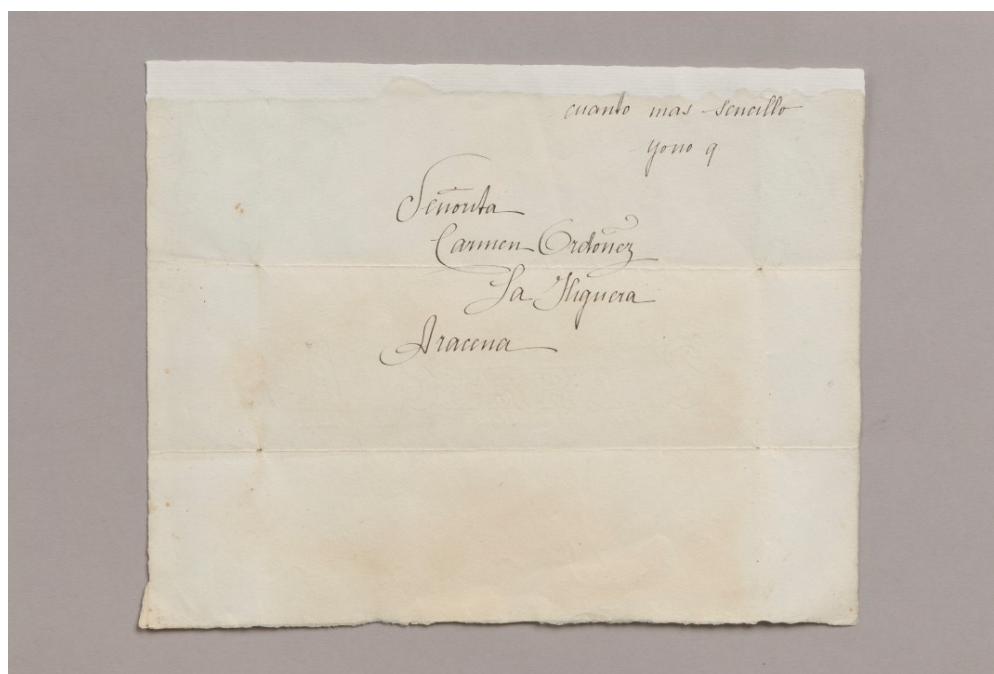 cuanto mas sencillo
yo no q
Señorita
Carmen Ordoñez
La Higuera
Aracena